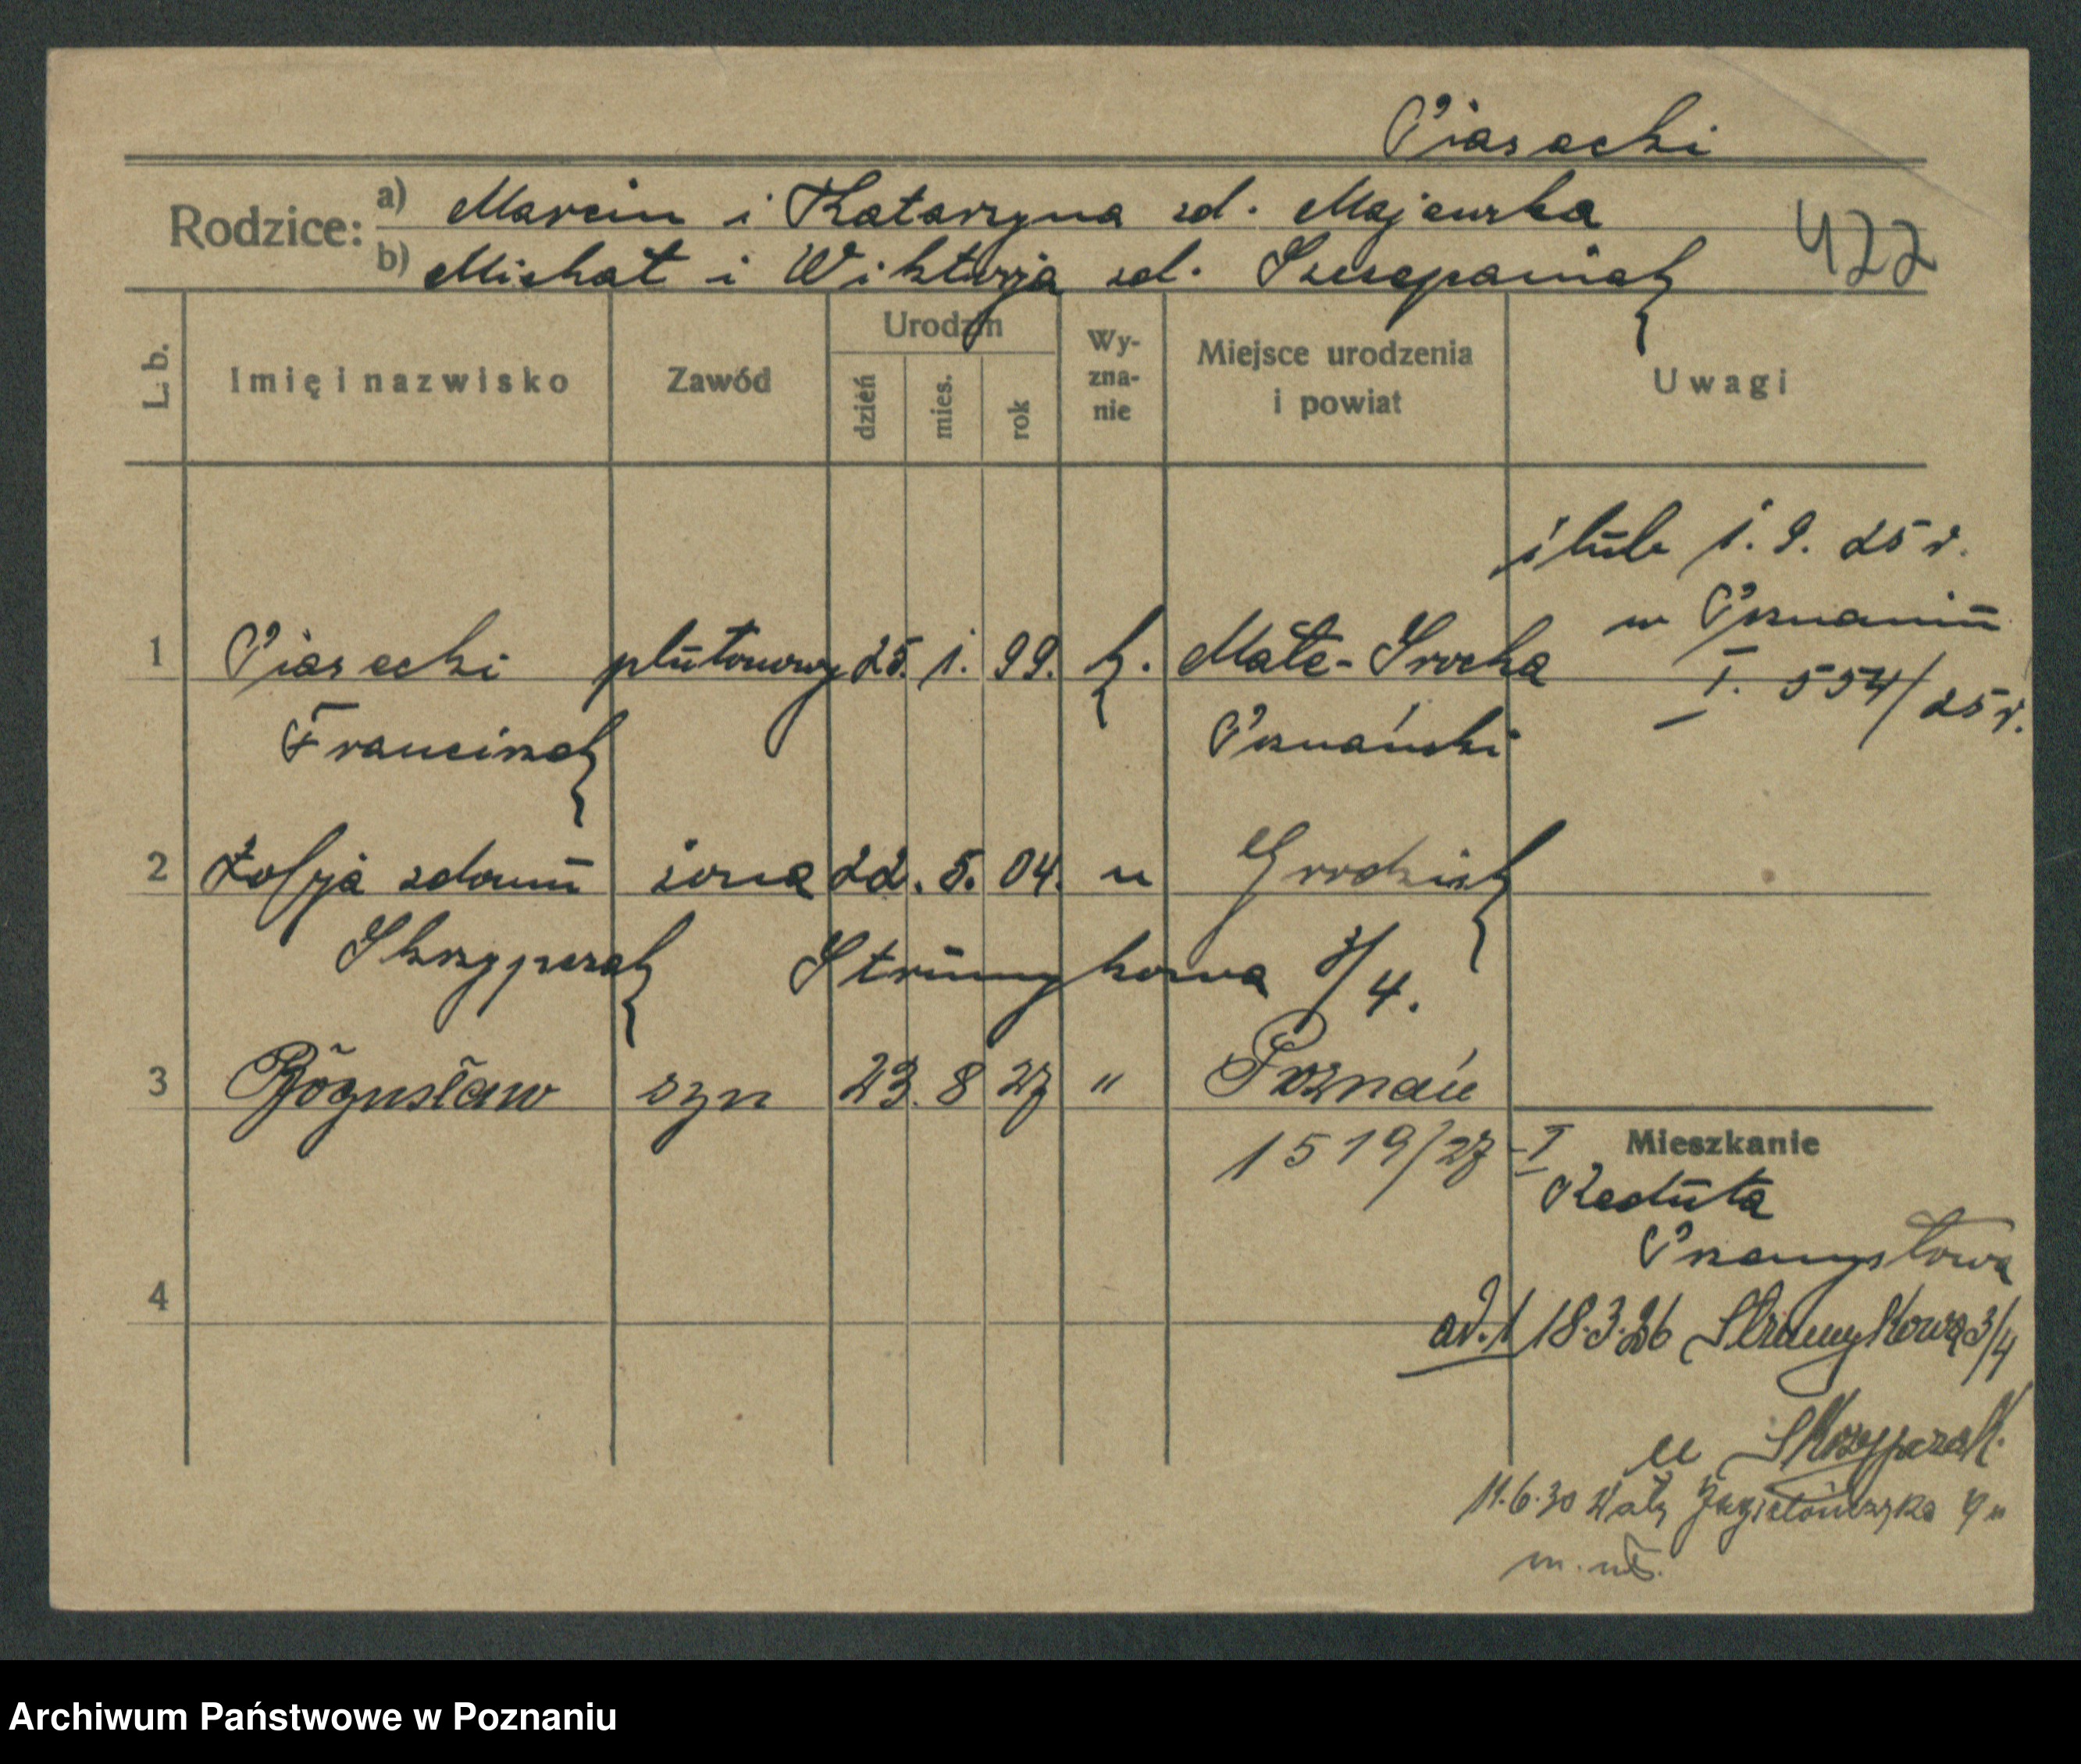 Piasecki
Rodzice: a) Marcin i Katarzyna zd. Majewska
b) Michał i Wiktorja zd. Szczepaniak
422
L. b. Imię i nazwisko Zawód Urodzin dzień mies. rok Wy-zna-nie Miejsce urodzenia i powiat Uwagi
ślub 1. 9. 25 r.
w Poznaniu
I. 554/25 r.
1 Piasecki plutonowy 25. 1. 99. k. Małe-Srocka
Franciszek Poznański
2 Zofja zdomu żona 22. 5. 04. " Grodzisk
Skrzypczak Strumykowa 3/4.
3 Bogusław syn 23. 8 27 " Poznań
1519/27 - I
Mieszkanie
Reduta
Przemysłowa
4
ad. 1 18.3.26 Strumykowa 3/4
u Skrzypczak.
11.6.30 Wały Jagiellończyka